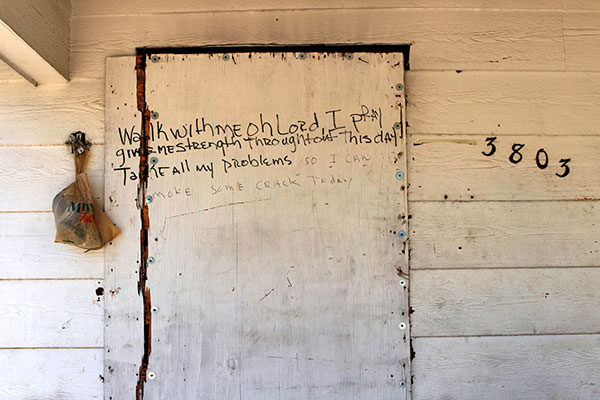 Walk with me oh Lord I pray
give me strength throughout this day
Take all my problems so I can
make some crack today
3803